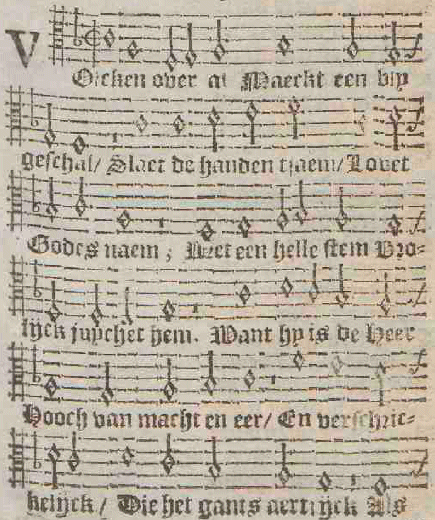 VOlcken over al Maeckt een bly
geschal/ Slaet de handen tsaem/ Lovet
Godes naem; Met een helle stem Vro-
lijck juychet hem. Want hy is de Heer
Hooch van macht en eer/ En verschric-
kelijck/ Die het gants aertrijck Als